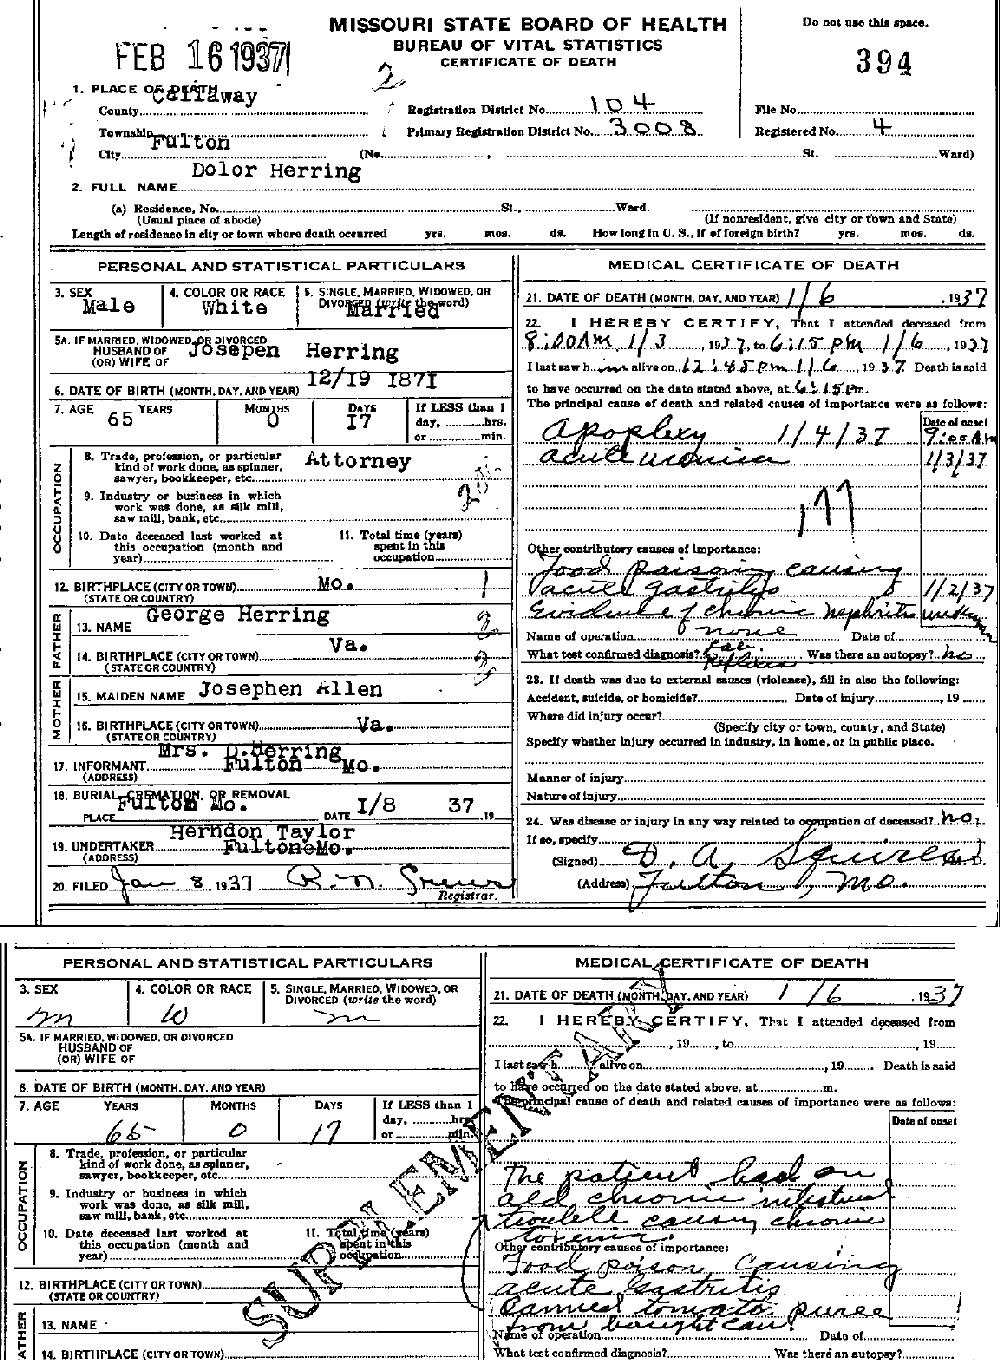 MISSOURI STATE BOARD OF HEALTH
BUREAU OF VITAL STATISTICS
CERTIFICATE OF DEATH
Do not use this space.
FEB 16 1937
394
2
1. PLACE OF DEATH
County Callaway
Registration District No. 104
File No.
Township
Primary Registration District No. 3008
Registered No. 4
City Fulton (No. , St. Ward)
2. FULL NAME Dolor Herring
(a) Residence, No. St., Ward.
(Usual place of abode) (If nonresident, give city or town and State)
Length of residence in city or town where death occurred yrs. mos. ds. How long in U. S., if of foreign birth? yrs. mos. ds.
PERSONAL AND STATISTICAL PARTICULARS
3. SEX Male
4. COLOR OR RACE White
5. SINGLE, MARRIED, WIDOWED, OR DIVORCED (write the word) Married
5A. IF MARRIED, WIDOWED, OR DIVORCED
HUSBAND OF Josepen Herring
(OR) WIFE OF
6. DATE OF BIRTH (MONTH, DAY, AND YEAR) 12/19 1871
7. AGE YEARS 65 MONTHS 0 DAYS 17 If LESS than 1
day, hrs.
or min.
OCCUPATION
8. Trade, profession, or particular
kind of work done, as spinner,
sawyer, bookkeeper, etc. Attorney
9. Industry or business in which
work was done, as silk mill,
saw mill, bank, etc.
10. Date deceased last worked at
this occupation (month and
year)
11. Total time (years)
spent in this
occupation
12. BIRTHPLACE (CITY OR TOWN) Mo.
(STATE OR COUNTRY)
FATHER
13. NAME George Herring
14. BIRTHPLACE (CITY OR TOWN) Va.
(STATE OR COUNTRY)
MOTHER
15. MAIDEN NAME Josephen Allen
16. BIRTHPLACE (CITY OR TOWN) Va.
(STATE OR COUNTRY)
17. INFORMANT Mrs. D.Herring
(ADDRESS) Fulton Mo.
18. BURIAL, CREMATION, OR REMOVAL
PLACE Fulton Mo. DATE 1/8 37 19
19. UNDERTAKER Herndon Taylor
(ADDRESS) Fulton Mo.
20. FILED Jan 8, 1937 R. N.
Registrar.
MEDICAL CERTIFICATE OF DEATH
21. DATE OF DEATH (MONTH, DAY, AND YEAR) 1/6 , 1937
22. I HEREBY CERTIFY, That I attended deceased from
8:00 AM 1/3, 1937, to 6:15 pm 1/6, 1937
I last saw him alive on 12:45 pm 1/6, 1937 Death is said
to have occurred on the date stated above, at 6:15 Pm.
The principal cause of death and related causes of importance were as follows:
Date of onset
Apoplexy 1/4/37
acute uremia 1/3/37
Other contributory causes of importance:
Food poisoning causing
acute gastritis 1/2/37
Evidence of chronic nephritis
Name of operation none Date of
What test confirmed diagnosis? Was there an autopsy? no
23. If death was due to external causes (violence), fill in also the following:
Accident, suicide, or homicide? Date of injury , 19
Where did injury occur?
(Specify city or town, county, and State)
Specify whether injury occurred in industry, in home, or in public place.
Manner of injury
Nature of injury
24. Was disease or injury in any way related to occupation of deceased? no.
If so, specify
(Signed) D. A.
(Address) Fulton, Mo.
PERSONAL AND STATISTICAL PARTICULARS
3. SEX m
4. COLOR OR RACE W
5. SINGLE, MARRIED, WIDOWED, OR DIVORCED (write the word) m
5A. IF MARRIED, WIDOWED, OR DIVORCED
HUSBAND OF
(OR) WIFE OF
6. DATE OF BIRTH (MONTH, DAY, AND YEAR)
7. AGE YEARS 65 MONTHS 0 DAYS 17 If LESS than 1
day, hrs.
or min.
OCCUPATION
8. Trade, profession, or particular
kind of work done, as spinner,
sawyer, bookkeeper, etc.
9. Industry or business in which
work was done, as silk mill,
saw mill, bank, etc.
10. Date deceased last worked at
this occupation (month and
year)
11. Total time (years)
spent in this
occupation
12. BIRTHPLACE (CITY OR TOWN)
(STATE OR COUNTRY)
FATHER
13. NAME
14. BIRTHPLACE (CITY OR TOWN)
SUPPLEMENTARY
MEDICAL CERTIFICATE OF DEATH
21. DATE OF DEATH (MONTH, DAY, AND YEAR) 1/6 , 1937
22. I HEREBY CERTIFY, That I attended deceased from
, 19 , to , 19
I last saw h alive on , 19 Death is said
to have occurred on the date stated above, at m.
The principal cause of death and related causes of importance were as follows:
Date of onset
The patient had an
old chronic intestinal
trouble causing chronic
toxemia.
Other contributory causes of importance:
Food poison causing
acute gastritis
Canned tomato puree
from bought can.
Name of operation Date of
What test confirmed diagnosis? Was there an autopsy?